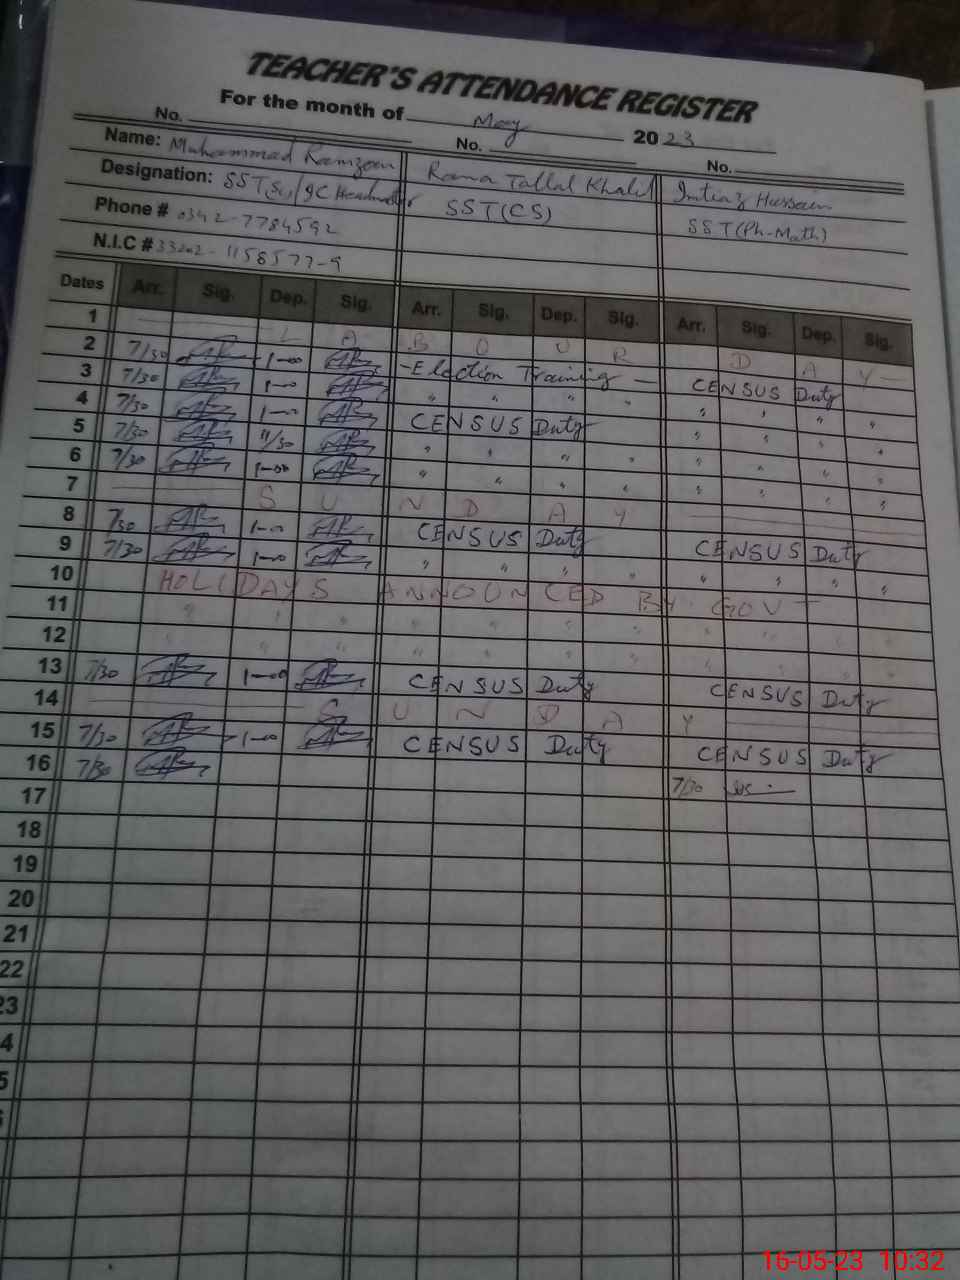 TEACHER'S ATTENDANCE REGISTER
For the month of May 2023
No. No. No.
Name: Muhammad Ramzan Rana Tallal Khalil Imtiaz Hussain
Designation: SST(Sc)/IC Headmaster SST(CS) SST(Ph-Math)
Phone # 0342-7784592
N.I.C # 33202-1158577-9
Dates Arr. Sig. Dep. Sig. Arr. Sig. Dep. Sig. Arr. Sig. Dep. Sig.
1 L A B O U R D A Y
2 7/30 1-00 - Election Training - CENSUS Duty
3 7/30 1-00 " " " " " " " "
4 7/30 1-00 CENSUS Duty " " " "
5 7/30 11/30 " " " " " " " "
6 7/30 1-00 " " " " " " " "
7 S U N D A Y
8 7/30 1-00 CENSUS Duty CENSUS Duty
9 7/30 1-00 " " " " " " " "
10 HOLIDAYS ANNOUNCED BY GOVT
11 " " " " " " " " " " "
12 " " " " " " " " " " "
13 7/30 1-00 CENSUS Duty CENSUS Duty
14 S U N D A Y
15 7/30 1-00 CENSUS Duty CENSUS Duty
16 7/30 7/30
17
18
19
20
21
22
23
4
5
16-05-23 10:32